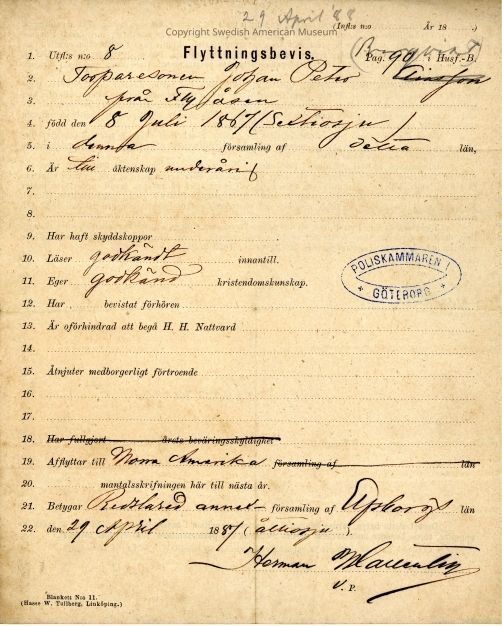 29 April '88
Copyright Swedish American Museum
(Infl:s n:o År 18 )
1. Utfl:s n:o 8 Flyttningsbevis. Pag. 90 i Husf.-B.
2. Torparesonen Johan Petro
3. från Flyåsen
4. född den 8 Juli 1867 (Sextiosju )
5. i denna församling af detta län,
6. Är äktenskap underårig
7.
8.
9. Har haft skyddskoppor
10. Läser godkändt innantill.
11. Eger godkänd kristendomskunskap.
12. Har bevistat förhören
13. Är oförhindrad att begå H. H. Nattvard
14.
15. Åtnjuter medborgerligt förtroende
16.
17.
18. Har fullgjort årets beväringsskyldighet
19. Afflyttar till Norra Amerika församling af län
20. mantalsskrifningen här till nästa år.
21. Betygar Redslared annex församling af Elfsborgs län
22. den 29 April 1887 (åttiosju ).
Herman
v. P.
POLISKAMMAREN I
+ GÖTEBORG +
Blankett N:o 11.
(Hasse W. Tullberg, Linköping.)